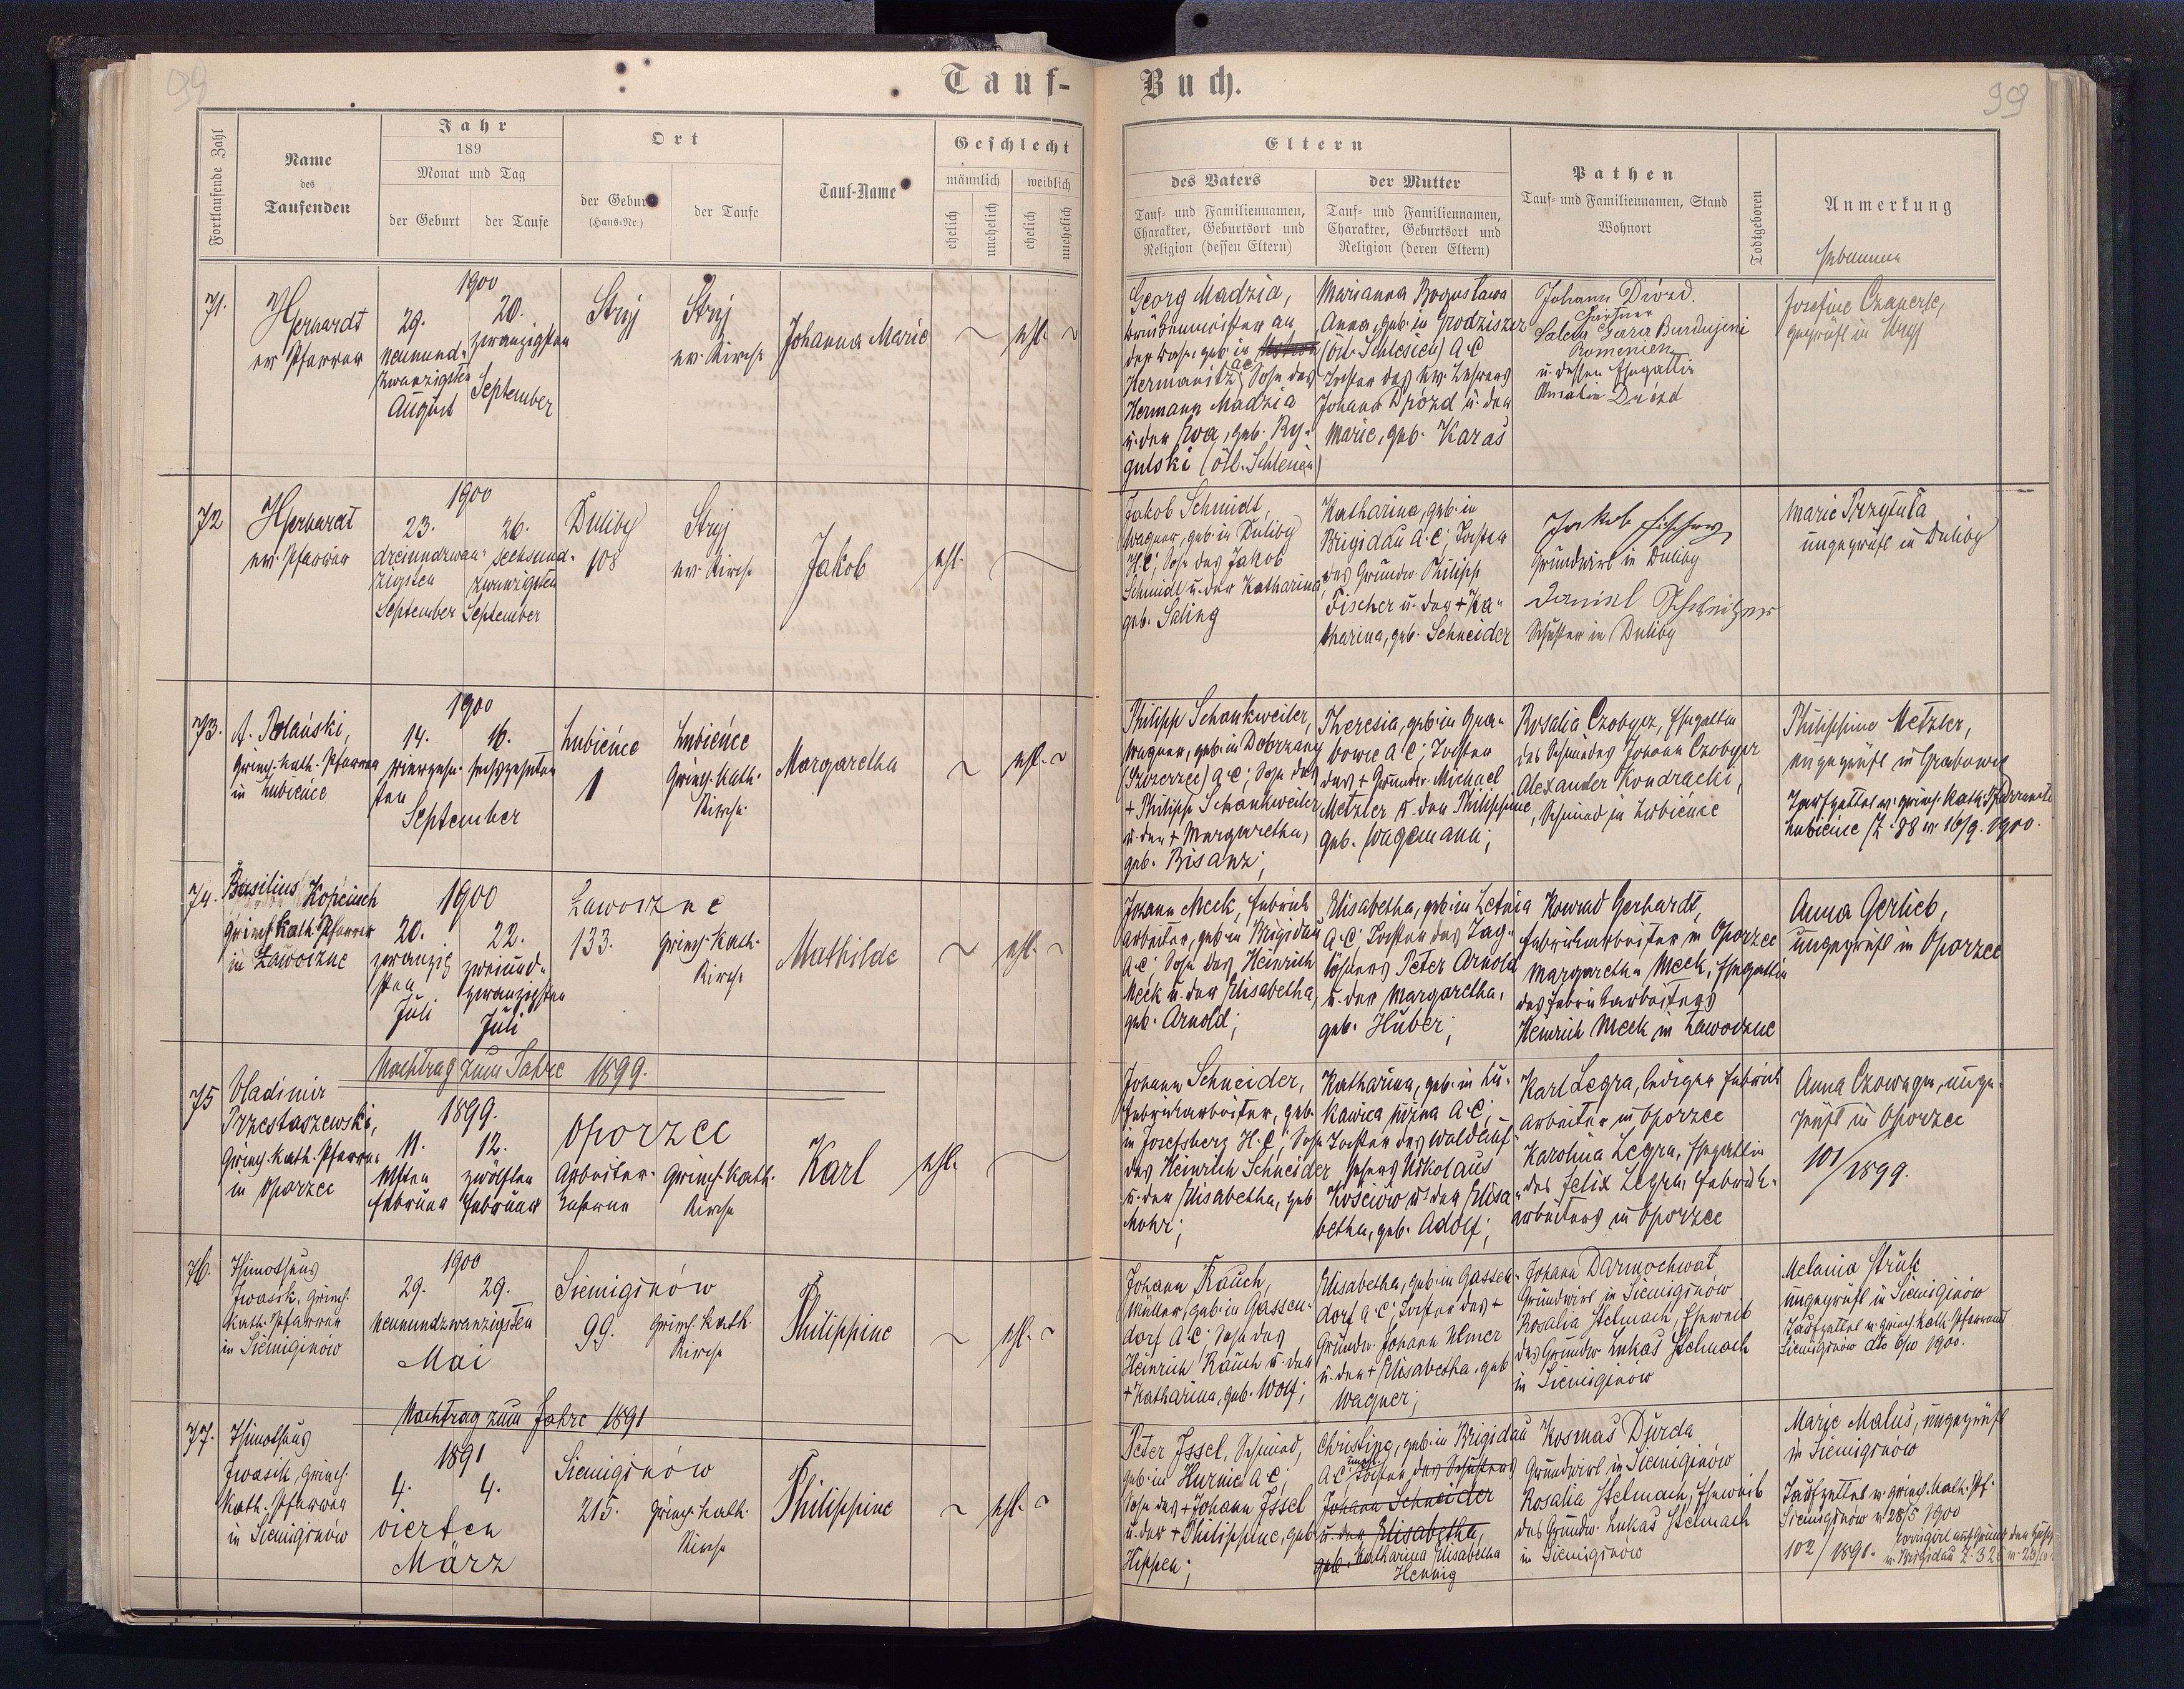 99
Tauf-
Buch.
99
Fortlaufende Zahl
Name
des
Taufenden
Jahr
189
Monat und Tag
der Geburt
der Taufe
Ort
der Geburt
(Haus-Nr.)
der Taufe
Tauf-Name
Geschlecht
männlich
weiblich
ehelich
unehelich
ehelich
unehelich
Eltern
des Vaters
Tauf- und Familiennamen,
Charakter, Geburtsort und
Religion (dessen Eltern)
der Mutter
Tauf- und Familiennamen,
Charakter, Geburtsort und
Religion (deren Eltern)
Pathen
Tauf- und Familiennamen, Stand
Wohnort
Todtgeboren
Anmerkung
Hebamme
71.
Gerhardt
ev. Pfarrer
1900
29.
neunund-
zwanzigsten
August
20.
zwanzigsten
September
Stryj
Stryj
ev. Kirche
Johanna Marie
ehl.
Georg Madzia,
Brückenmeister an
der Bahn, geb. in
Hermanitz AC Sohn des
Hermann Madzia
u. der Eva, geb. Ry-
gulski (öst. Schlesien)
Marianna Bogusława
Anna, geb. in Grodziszcz
(öst. Schlesien) A.C
Tochter des ev. Lehrers
Johann Drózd u. der
Marie, geb. Karaś
Johann Drózd.
Gärtner
Burdujeni
Romenien
u. dessen Ehegattin
Drózd
Josefine
geprüft in Stryj
72
Gerhardt
ev. Pfarrer
1900
23.
dreiundzwan-
zigsten
September
26.
sechsund-
zwanzigsten
September
Duliby
108
Stryj
ev. Kirche
Jakob
ehl.
Jakob Schmidt,
Wagner, geb. in Duliby
H.C; Sohn des Jakob
Schmidt u. der Katharina,
geb. Saling
Katharina, geb. in
Brigidau A.C; Tochter
des Grundw. Philipp
Fischer u. der + Ka-
tharina, geb. Schneider
Jakob Fischer
Grundwirt in Duliby
Daniel
Schuster in Duliby
Marie Przytuła
ungeprüft in Duliby
73.
griech. kath. Pfarrer
in Łubieńce
1900
14.
vierzehn-
ten
16.
sechszehnten
September
Łubieńce
1
Łubieńce
Griech. kath.
Kirche
Margaretha
ehl.
Philipp Schankweiler,
Wagner, geb. in Dobrzany
(Szczerzec) A.C; Sohn des
+ Philipp Schankweiler
u. der + Margaretha,
geb. Bisanz;
Theresia, geb. in Gra-
bowce A.C; Tochter
des + Grundw. Michael
Metzler u. der Philippine,
geb. Wagemann;
Rosalia Czobyrz, Ehegattin
des Schmiedes Johann Czobyrz
Alexander Kondracki,
Schmied in Łubieńce
Philippine Metzler,
ungeprüft in Grabowce
Taufzettel v. griech. kath. Pfarramte
Łubieńce Z. 88 v. 16/9. 1900.
74.
Basilius
griech. kath. Pfarrer
in Ławoczne
1900
20.
zwanzig
sten
Juli
22.
zweiund-
zwanzigsten
Juli
Ławoczne
133.
griech. kath.
Kirche
Mathilde
ehl.
Johann Meck, Fabrik
arbeiter, geb. in Brigidau
A.C; Sohn des Heinrich
Meck u. der Elisabetha,
geb. Arnold;
Elisabetha, geb. in Letnia
A.C; Tochter des Tag-
löhners Peter Arnold
u. der Margaretha,
geb. Huber;
Konrad Gerhardt,
Fabriksarbeiter in Oporzec
Margaretha Meck, Ehegattin
des Fabriksarbeiters
Heinrich Meck in Ławoczne
Anna Gerlieb,
ungeprüft in Oporzec
Nachtrag zum Jahre 1899.
75
Vladimir
Przestaszewski,
Griech. kath. Pfarrer
in Oporzec
1899.
11.
elften
Februar
12.
zwölften
Februar
Oporzec
Arbeiter-
kaserne
Griech. kath.
Kirche
Karl
ehl.
Johann Schneider,
Fabriksarbeiter, geb.
in Josefsberg H.C; Sohn
des Heinrich Schneider
u. der Elisabetha, geb.
Mohr;
Katharina, geb. in Łu-
kawica A.C;
Tochter des Waldauf-
sehers Nikolaus
Kościów u. der Elisa-
betha, geb. Adolf;
Karl Legra, lediger Fabrik
arbeiter in Oporzec
Karolina Legra, Ehegattin
des Felix Legra, Fabriks-
arbeiters in Oporzec
Anna, unge-
prüft in Oporzec
101/1899.
76.
Thimotheus
Iwasik, griech.
kath. Pfarrer
in Siemiginów
1900
29.
29.
neunundzwanzigsten
Mai
Siemiginów
99.
griech. kath.
Kirche
Philippine
ehl.
Johann Rauch,
Müller, geb. in Gassen-
dorf A.C; Sohn des
Heinrich Rauch u. der
+ Katharina, geb. Wolf;
Elisabetha, geb. in Gassen-
dorf A.C; Tochter des +
Grundw. Johann Ulmer
u. der + Elisabetha, geb.
Wagner;
Johann Darmochwat,
Grundwirt in Siemiginów
Rosalia Stelmach, Eheweib
des Grundw. Lukas Stelmach
in Siemiginów
Melania Struk
ungeprüft in Siemiginów
Taufzettel v. griech. kath. Pfarramt
Siemiginów dto 6/10 1900.
Nachtrag zum Jahre 1891
77.
Thimotheus
Iwasik, griech.
kath. Pfarrer
in Siemiginów
1891
4.
4.
vierten
März
Siemiginów
215.
griech. kath.
Kirche
Philippine
ehl.
Peter Issel, Schmied,
geb. in Hurnie A.C;
Sohn des + Johann Issel
u. der + Philippine, geb.
Hippen;
Christine, geb. in Brigidau
A.C; Tochter des Schusters
Johann Schneider
u. der Elisabetha,
geb. Katharina Elisabetha
Hennig
Kosmas Djurda
Grundwirt in Siemiginów
Rosalia Stelmach, Eheweib
des Grundw. Lukas Stelmach
in Siemiginów
Marie Malus, ungeprüft
in Siemiginów
Taufzettel v. griech. kath. Pf.
Siemiginów v. 28/5 1900
102/1891.